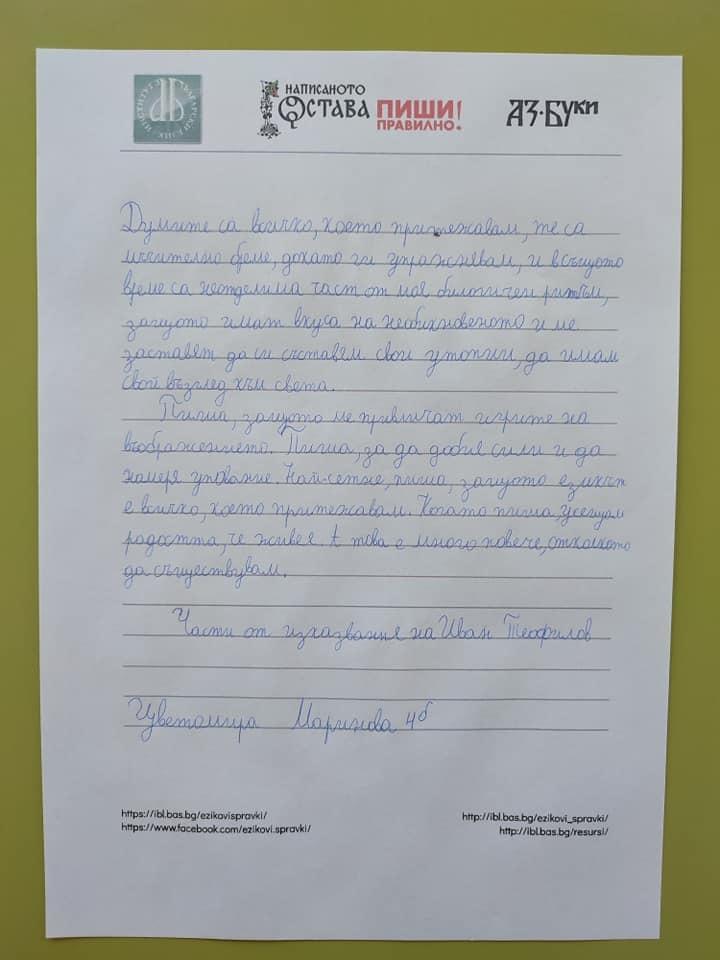 ИНСТИТУТ ЗА БЪЛГАРСКИ ЕЗИК
НАПИСАНОТО
ОСТАВА
ПИШИ
ПРАВИЛНО!
АЗ·БУКИ
Думите са всичко, което притежавам, те са
мъчително бреме, докато ги упражнявам, и в същото
време са неотделима част от моя биологичен ритъм,
защото имат вкуса на необикновеното и ме
заставят да си съставям свои утопии, да имам
свой възглед към света.
Пиша, защото ме привличат игрите на
въображението. Пиша, за да добия сили и да
намеря упование. Най-сетне, пиша, защото езикът
е всичко, което притежавам. Когато пиша, усещам
радостта, че живея. А това е много повече, отколкото
да съществувам.
Части от изказвания на Иван Теофилов
Цветомира Маринова 4б
https://ibl.bas.bg/ezikovispravki/
https://www.facebook.com/ezikovi.spravki/
http://ibl.bas.bg/ezikovi_spravki/
http://ibl.bas.bg/resursi/